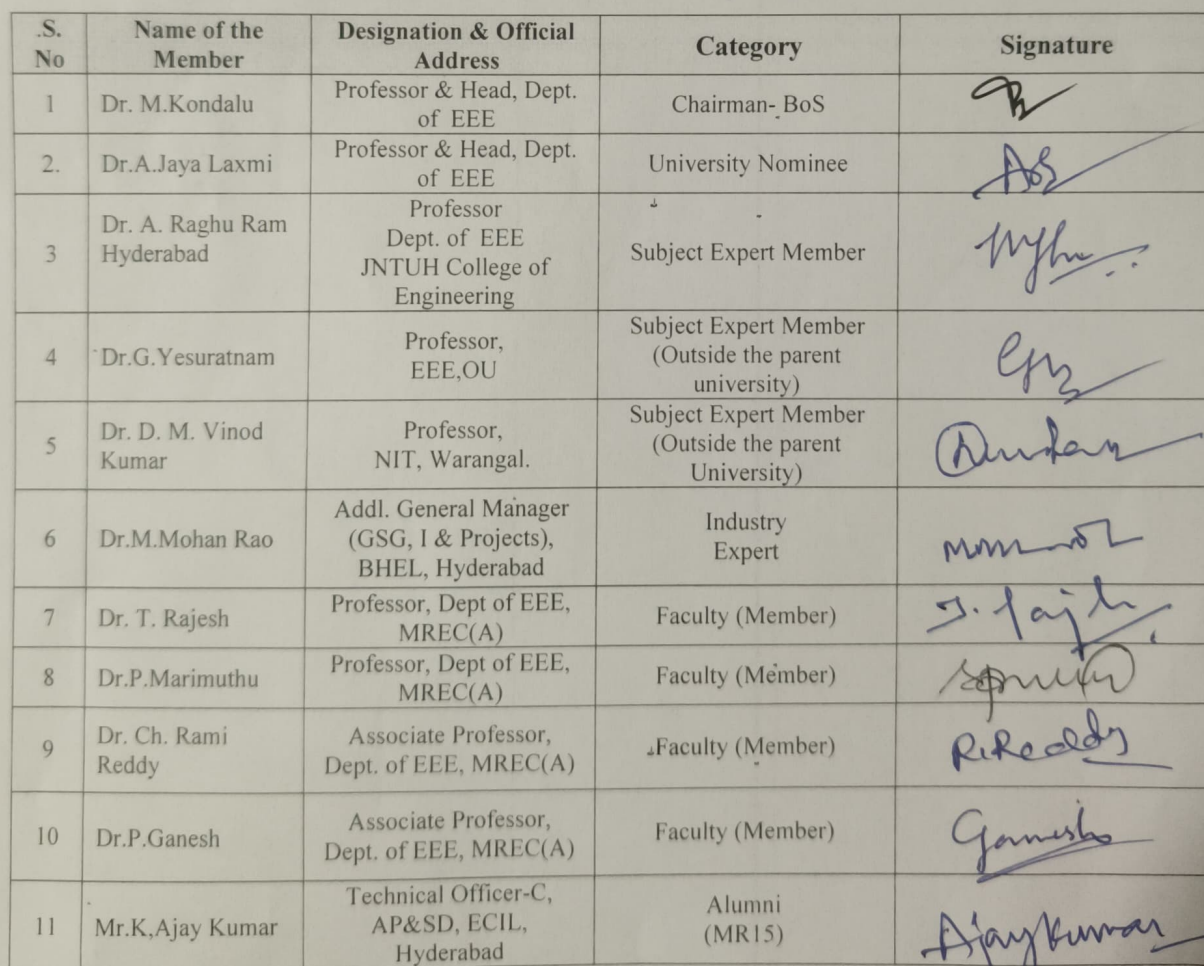 .S. No
Name of the Member
Designation & Official Address
Category
Signature
1
Dr. M.Kondalu
Professor & Head, Dept. of EEE
Chairman- BoS
2.
Dr.A.Jaya Laxmi
Professor & Head, Dept. of EEE
University Nominee
3
Dr. A. Raghu Ram
Hyderabad
Professor
Dept. of EEE
JNTUH College of
Engineering
Subject Expert Member
4
Dr.G.Yesuratnam
Professor,
EEE,OU
Subject Expert Member
(Outside the parent
university)
5
Dr. D. M. Vinod
Kumar
Professor,
NIT, Warangal.
Subject Expert Member
(Outside the parent
University)
6
Dr.M.Mohan Rao
Addl. General Manager
(GSG, I & Projects),
BHEL, Hyderabad
Industry
Expert
7
Dr. T. Rajesh
Professor, Dept of EEE,
MREC(A)
Faculty (Member)
8
Dr.P.Marimuthu
Professor, Dept of EEE,
MREC(A)
Faculty (Member)
9
Dr. Ch. Rami
Reddy
Associate Professor,
Dept. of EEE, MREC(A)
Faculty (Member)
R.Reddy
10
Dr.P.Ganesh
Associate Professor,
Dept. of EEE, MREC(A)
Faculty (Member)
Ganesh
11
Mr.K,Ajay Kumar
Technical Officer-C,
AP&SD, ECIL,
Hyderabad
Alumni
(MR15)
Ajay Kumar